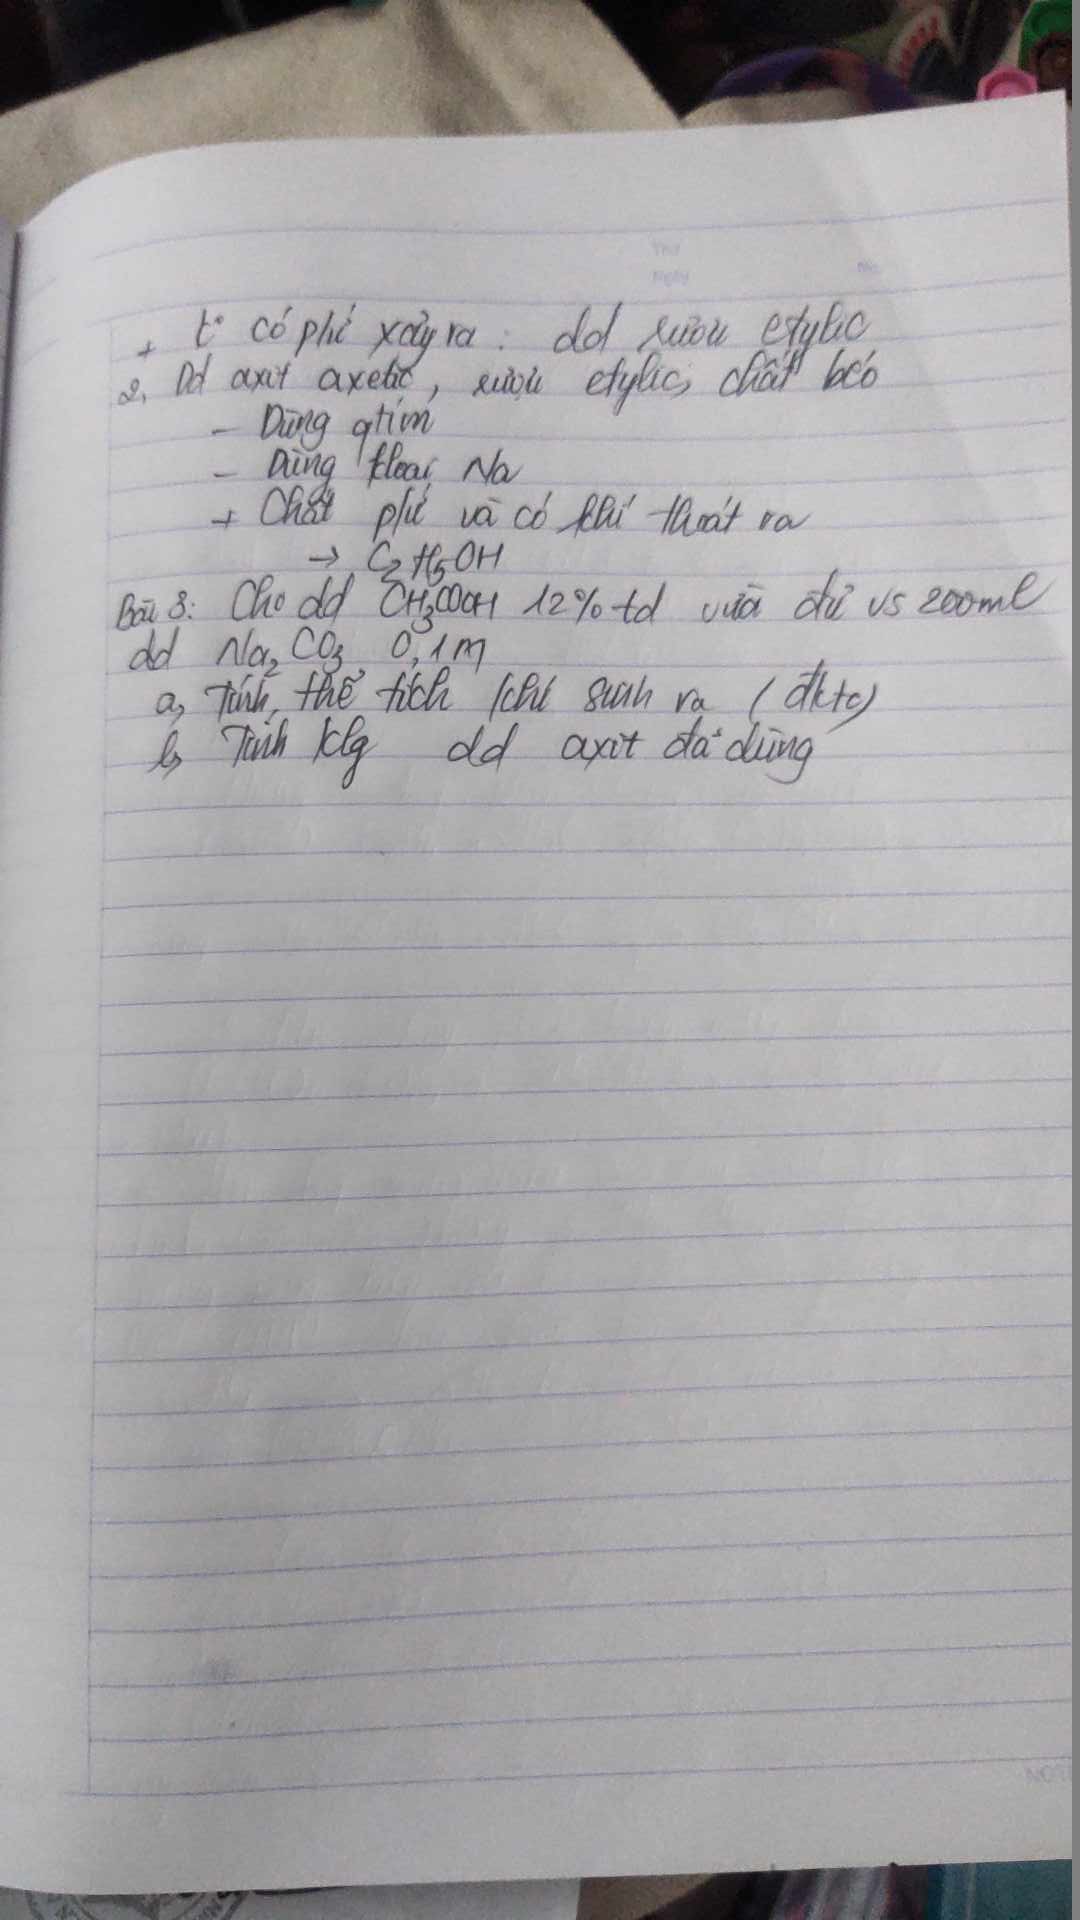 Thứ
Ngày No.
+ t° có phứ xảy ra : dd rượu etylic
2, Dd axit axetic, rượu etylic, chất béo
- Dùng qtím
- Dùng kloại Na
+ Chất phứ và có khí thoát ra
→ C2H5OH
Bài 3: Cho dd CH3COOH 12% td vừa đủ vs 200ml
dd Na2CO3 0,1M
a, Tính thể tích khí sinh ra (đktc)
b, Tính klg dd axit đã dùng